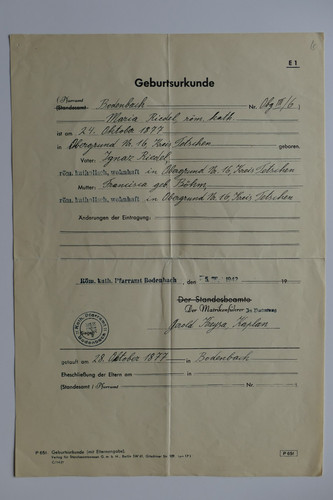 E 1
Geburtsurkunde
(Pfarramt
(Standesamt) Bodenbach Nr.
Maria Riedel, röm. kath.
ist am 24. Oktober 1877
in Obergrund No. 16, Kreis Tetschen geboren.
Vater: Ignaz Riedel,
röm. katholisch, wohnhaft in Obergrund No. 16, Kreis Tetschen
Mutter: Francisca geb. Böhm,
röm. katholisch, wohnhaft in Obergrund No. 16, Kreis Tetschen
Änderungen der Eintragung:
Röm. kath. Pfarramt Bodenbach, den 19
Der Standesbeamte
Der Matrikenführer
Kaplan
getauft am 28. Oktober 1877 in Bodenbach
Eheschließung der Eltern am in
(Standesamt) Pfarramt Nr.
P 851 Geburtsurkunde (mit Elternangabe).
P 851